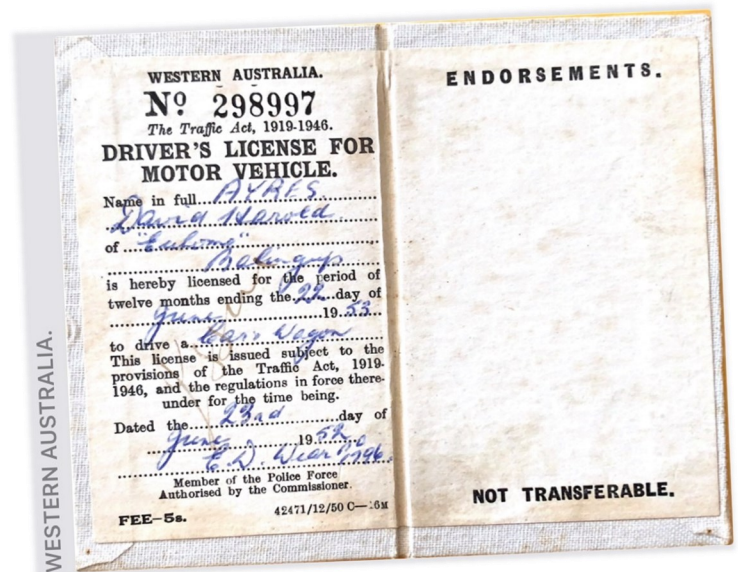 WESTERN AUSTRALIA.
Nº 298997
The Traffic Act, 1919-1946.
DRIVER'S LICENSE FOR
MOTOR VEHICLE.
Name in full AYRES
David Harold
of "Euhoma"
Balingup
is hereby licensed for the period of
twelve months ending the 22 day of
June 1953
to drive a Car & Wagon
This license is issued subject to the
provisions of the Traffic Act, 1919-
1946, and the regulations in force there-
under for the time being.
Dated the 23rd day of
June 1952
E.D. 1796
Member of the Police Force
Authorised by the Commissioner.
FEE—5s.
42471/12/50 C—16M
ENDORSEMENTS.
NOT TRANSFERABLE.
WESTERN AUSTRALIA.